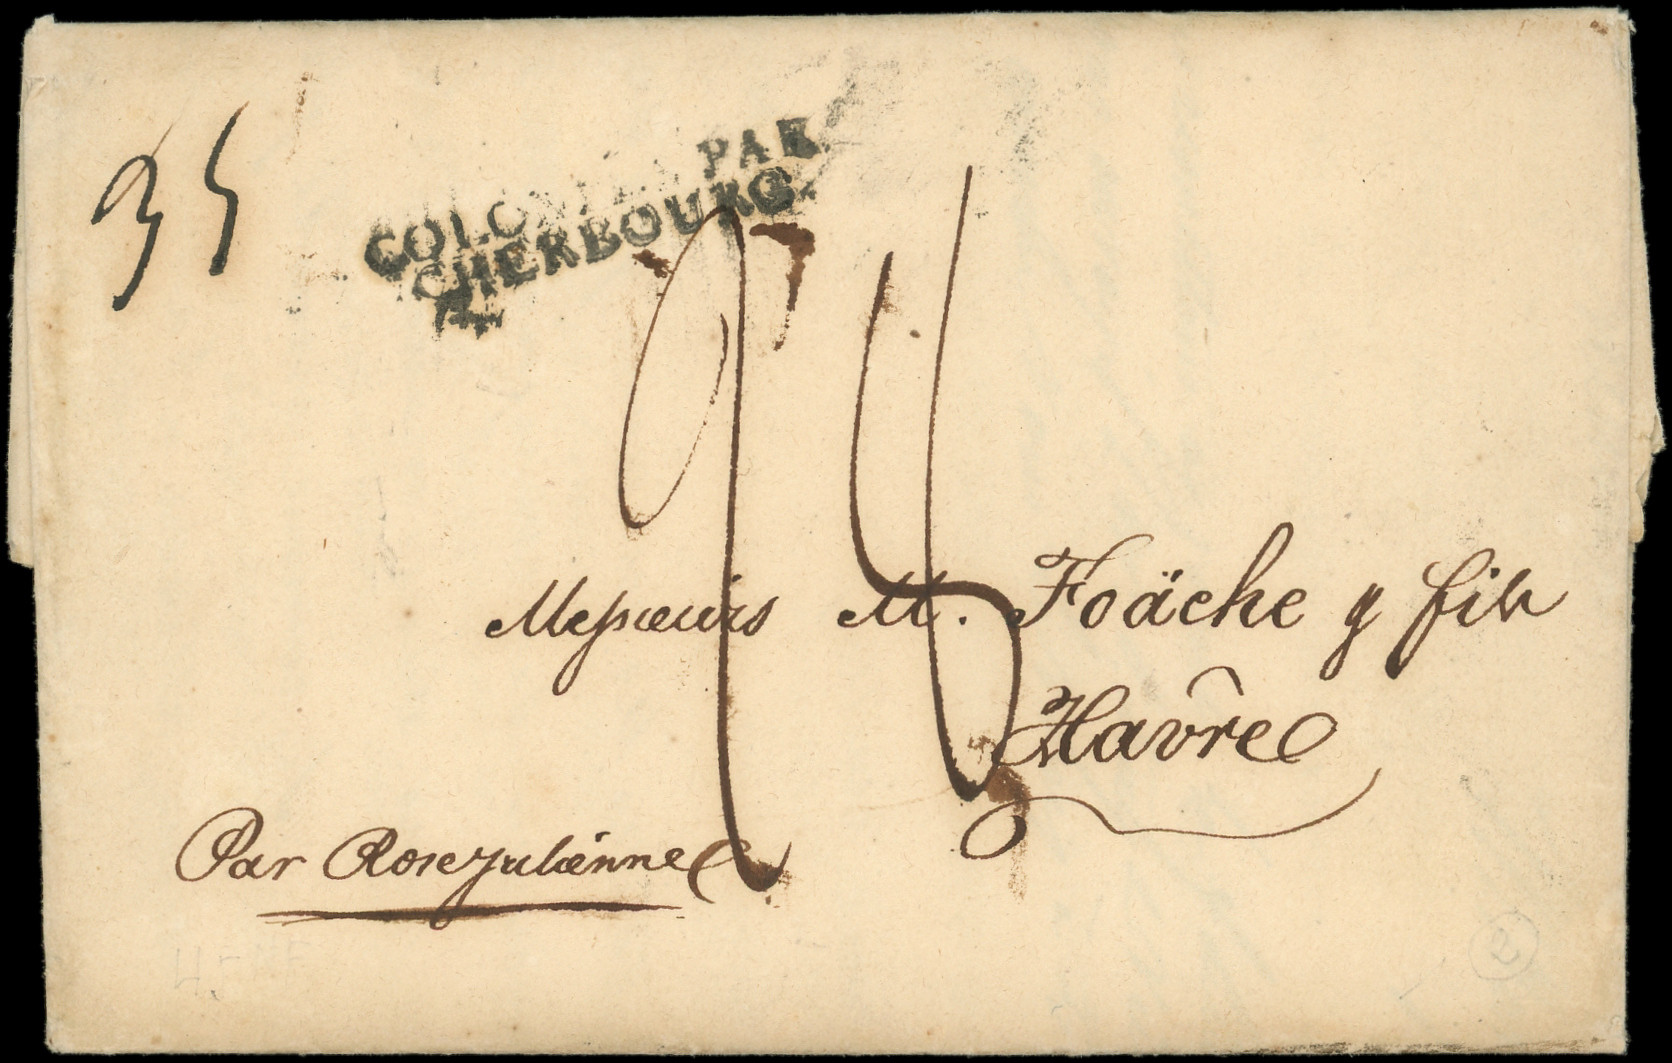 35
COLONIES PAR
CHERBOURG
24
Messieurs M. Foäche & fils
Havre
Par Rose Julienne
2